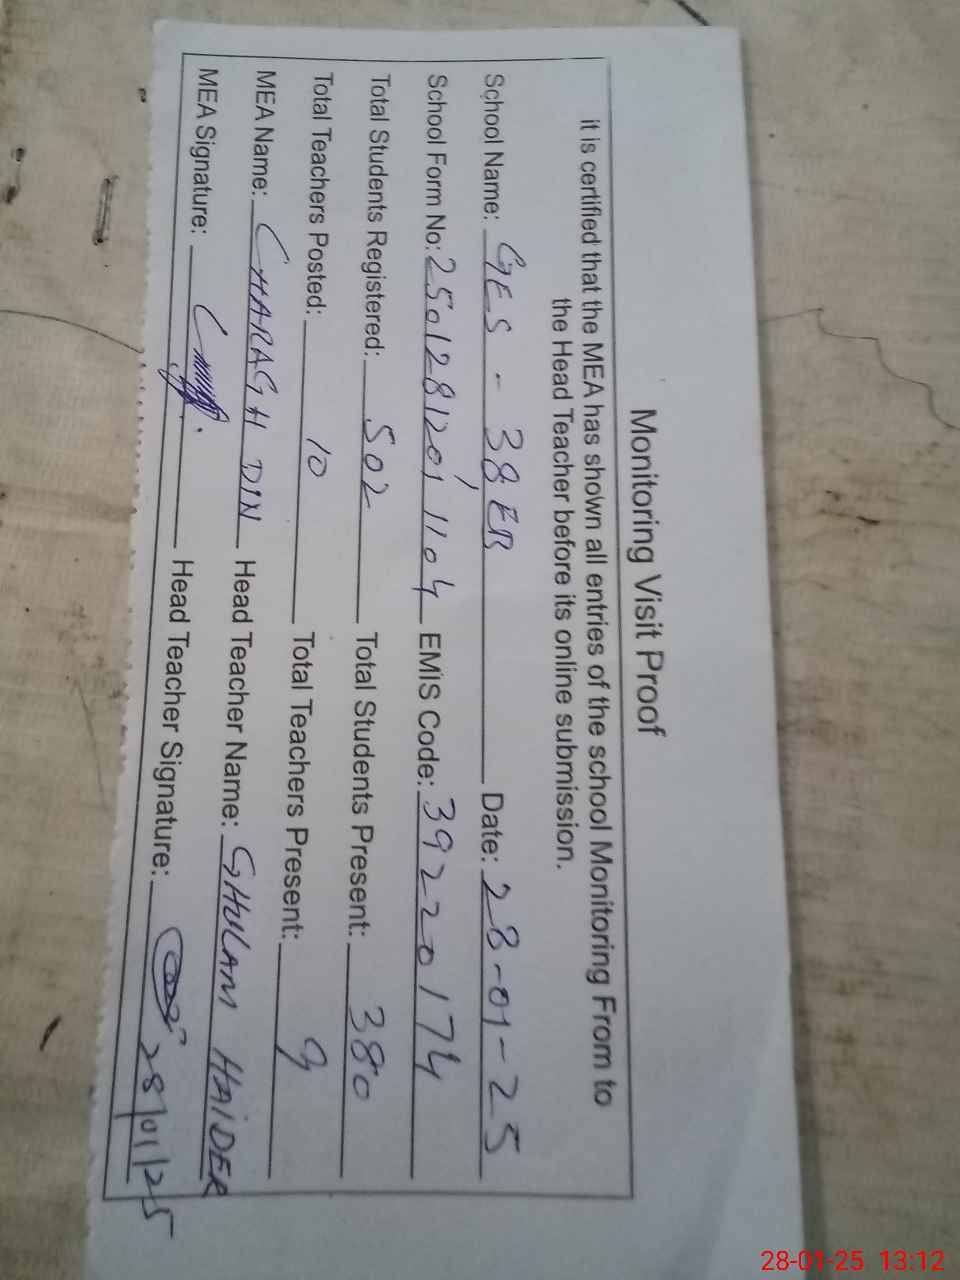 Monitoring Visit Proof
it is certified that the MEA has shown all entries of the school Monitoring From to
the Head Teacher before its online submission.
School Name: GES - 38 EB Date: 28-01-25
School Form No: 2501281201'1104 EMIS Code: 39220174
Total Students Registered: 502 Total Students Present: 380
Total Teachers Posted: 10 Total Teachers Present: 9
MEA Name: CHARAGH DIN Head Teacher Name: GHULAM HAIDER
MEA Signature: Head Teacher Signature: 28/01/25
28-01-25 13:12